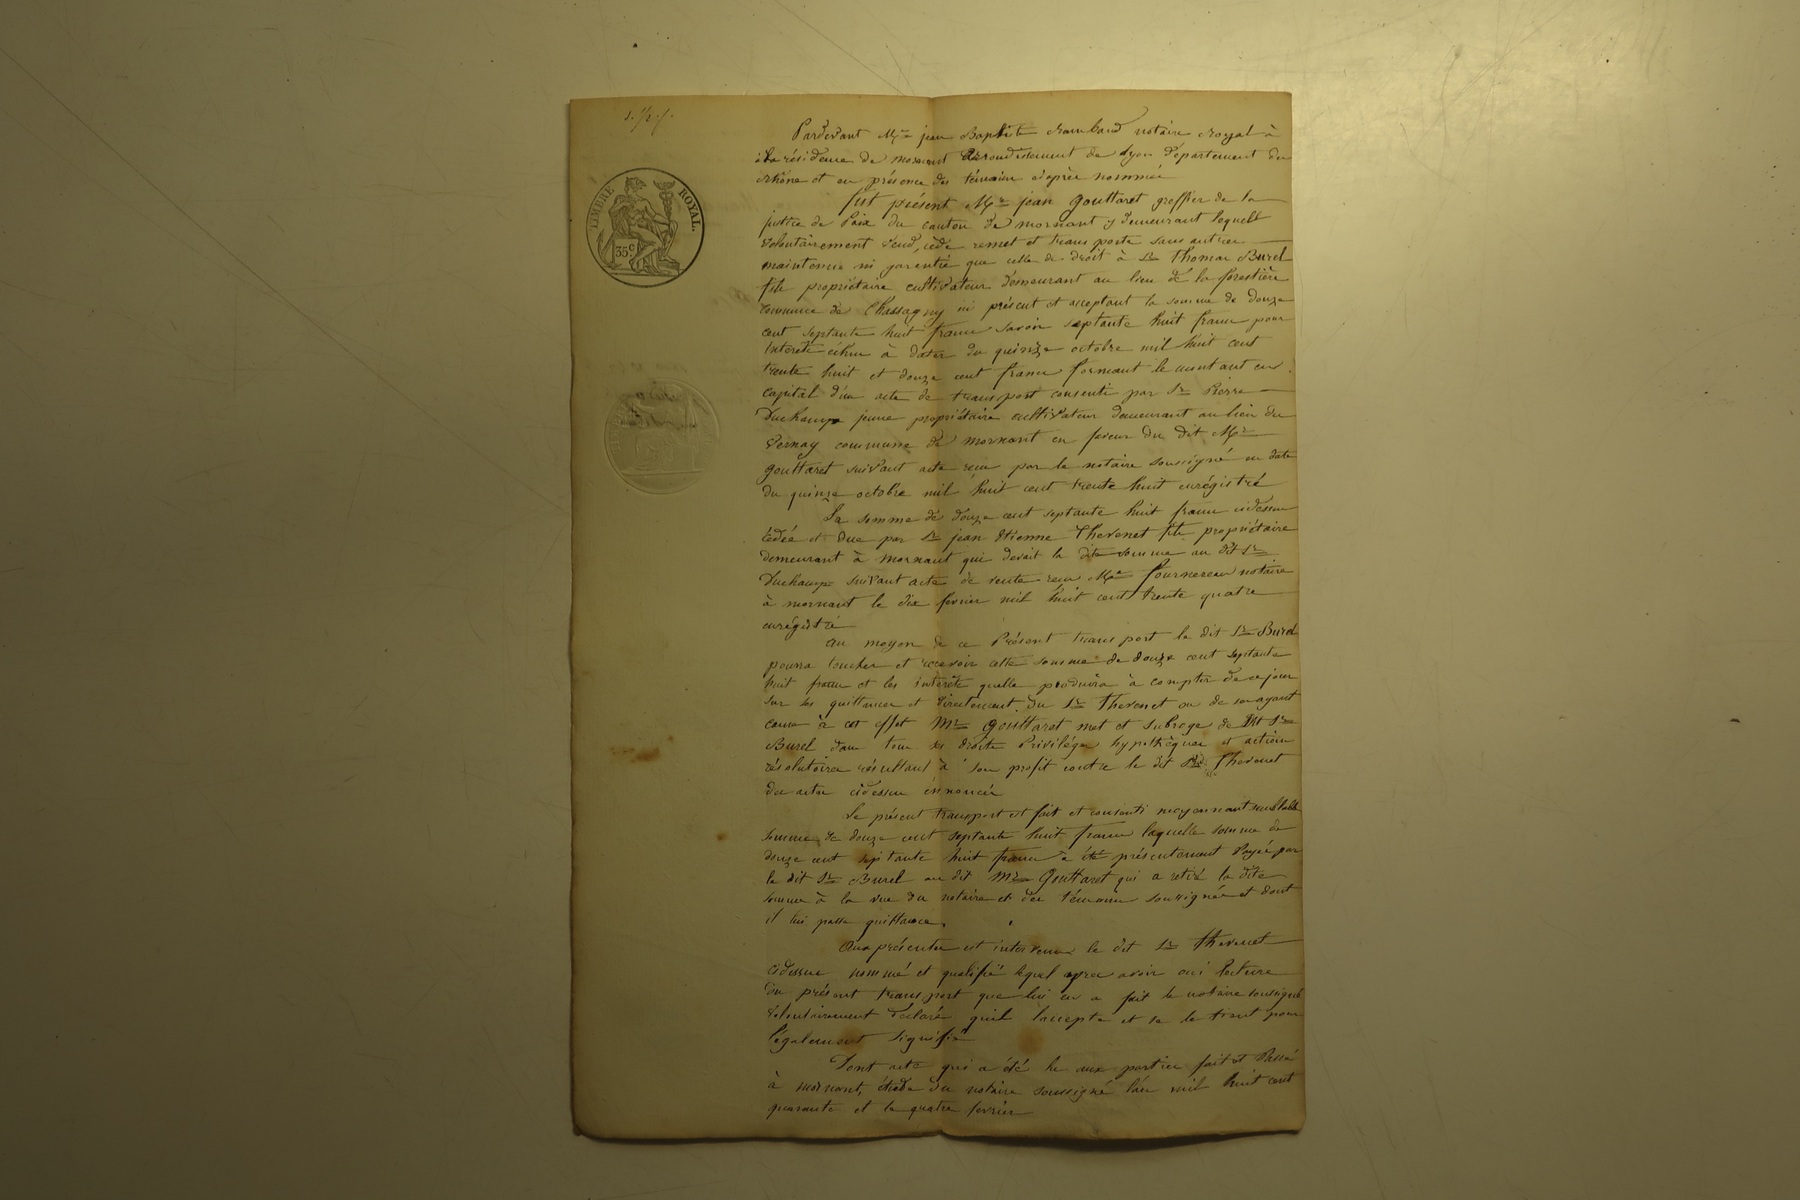 1. 1/2 f.
TIMBRE ROYAL
35 c
Pardevant Me jean Baptiste Rambaud notaire Royal à
la résidence de mornant Arrondissement de Lyon département du
Rhône et en présence des témoins ciaprès nommés
fut présent Mr jean Gouttaret greffier de la
justice de Paix du canton de mornant y demeurant lequel
volontairement vend, cède remet et transporte sans autres
maintenue ni garentie que celle de droit à Sr Thomas Burel
fils propriétaire cultivateur demeurant au lieu de la forestière
commune de Chassagny ici présent et acceptant la somme de douze
cent septante huit francs savoir septante huit francs pour
intérêts échus à dater du quinze octobre mil huit cent
trente huit et douze cent francs formant le montant en
capital d'un acte de transport consenti par Sr Pierre
Duchamps jeune propriétaire cultivateur demeurant au lieu du
Vernay commune de mornant en faveur du dit Mr
Gouttaret suivant acte reçu par le notaire soussigné en date
du quinze octobre mil huit cent trente huit enrégistré
La somme de douze cent septante huit francs cidessus
cédée et due par Sr jean Etienne Thevenet fils propriétaire
demeurant à mornant qui devait la dite somme au dit Sr
Duchamps suivant acte de vente reçu Me fournereau notaire
à mornant le dix fevrier mil huit cent trente quatre
enrégistré
au moyen de ce Présent transport le dit Sr Burel
pourra toucher et recevoir cette somme de douze cent septante
huit francs et les intérêts quelle produira à compter de ce jour
sur ses quittances et directement du Sr Thevenet ou de ses ayant
cause à cet effet Mr Gouttaret met et subroge le dit Sr
Burel dans tous ses droits Privilèges hypothèques et actions
résolutoires résultant à son profit contre le dit Sr Thevenet
des actes cidessus énnoncés
Le présent transport est fait et consenti moyennant semblable
somme de douze cent septante huit francs laquelle somme de
douze cent septante huit francs a été présentement Payée par
le dit Sr Burel au dit Mr Gouttaret qui a retiré la dite
somme à la vue du notaire et des témoins soussignés et dont
il lui passe quittance.
Aux présentes est intervenu le dit Sr Thevenet
cidessus nommé et qualifié lequel apres avoir oui lecture
du présent transport que lui en a fait le notaire soussigné
volontairement déclaré quil laccepte et se le tient pour
légalement signifié
Dont acte qui a été lu aux parties fait et Passé
à mornant, étude du notaire soussigné l'an mil huit cent
quarante et le quatre fevrier